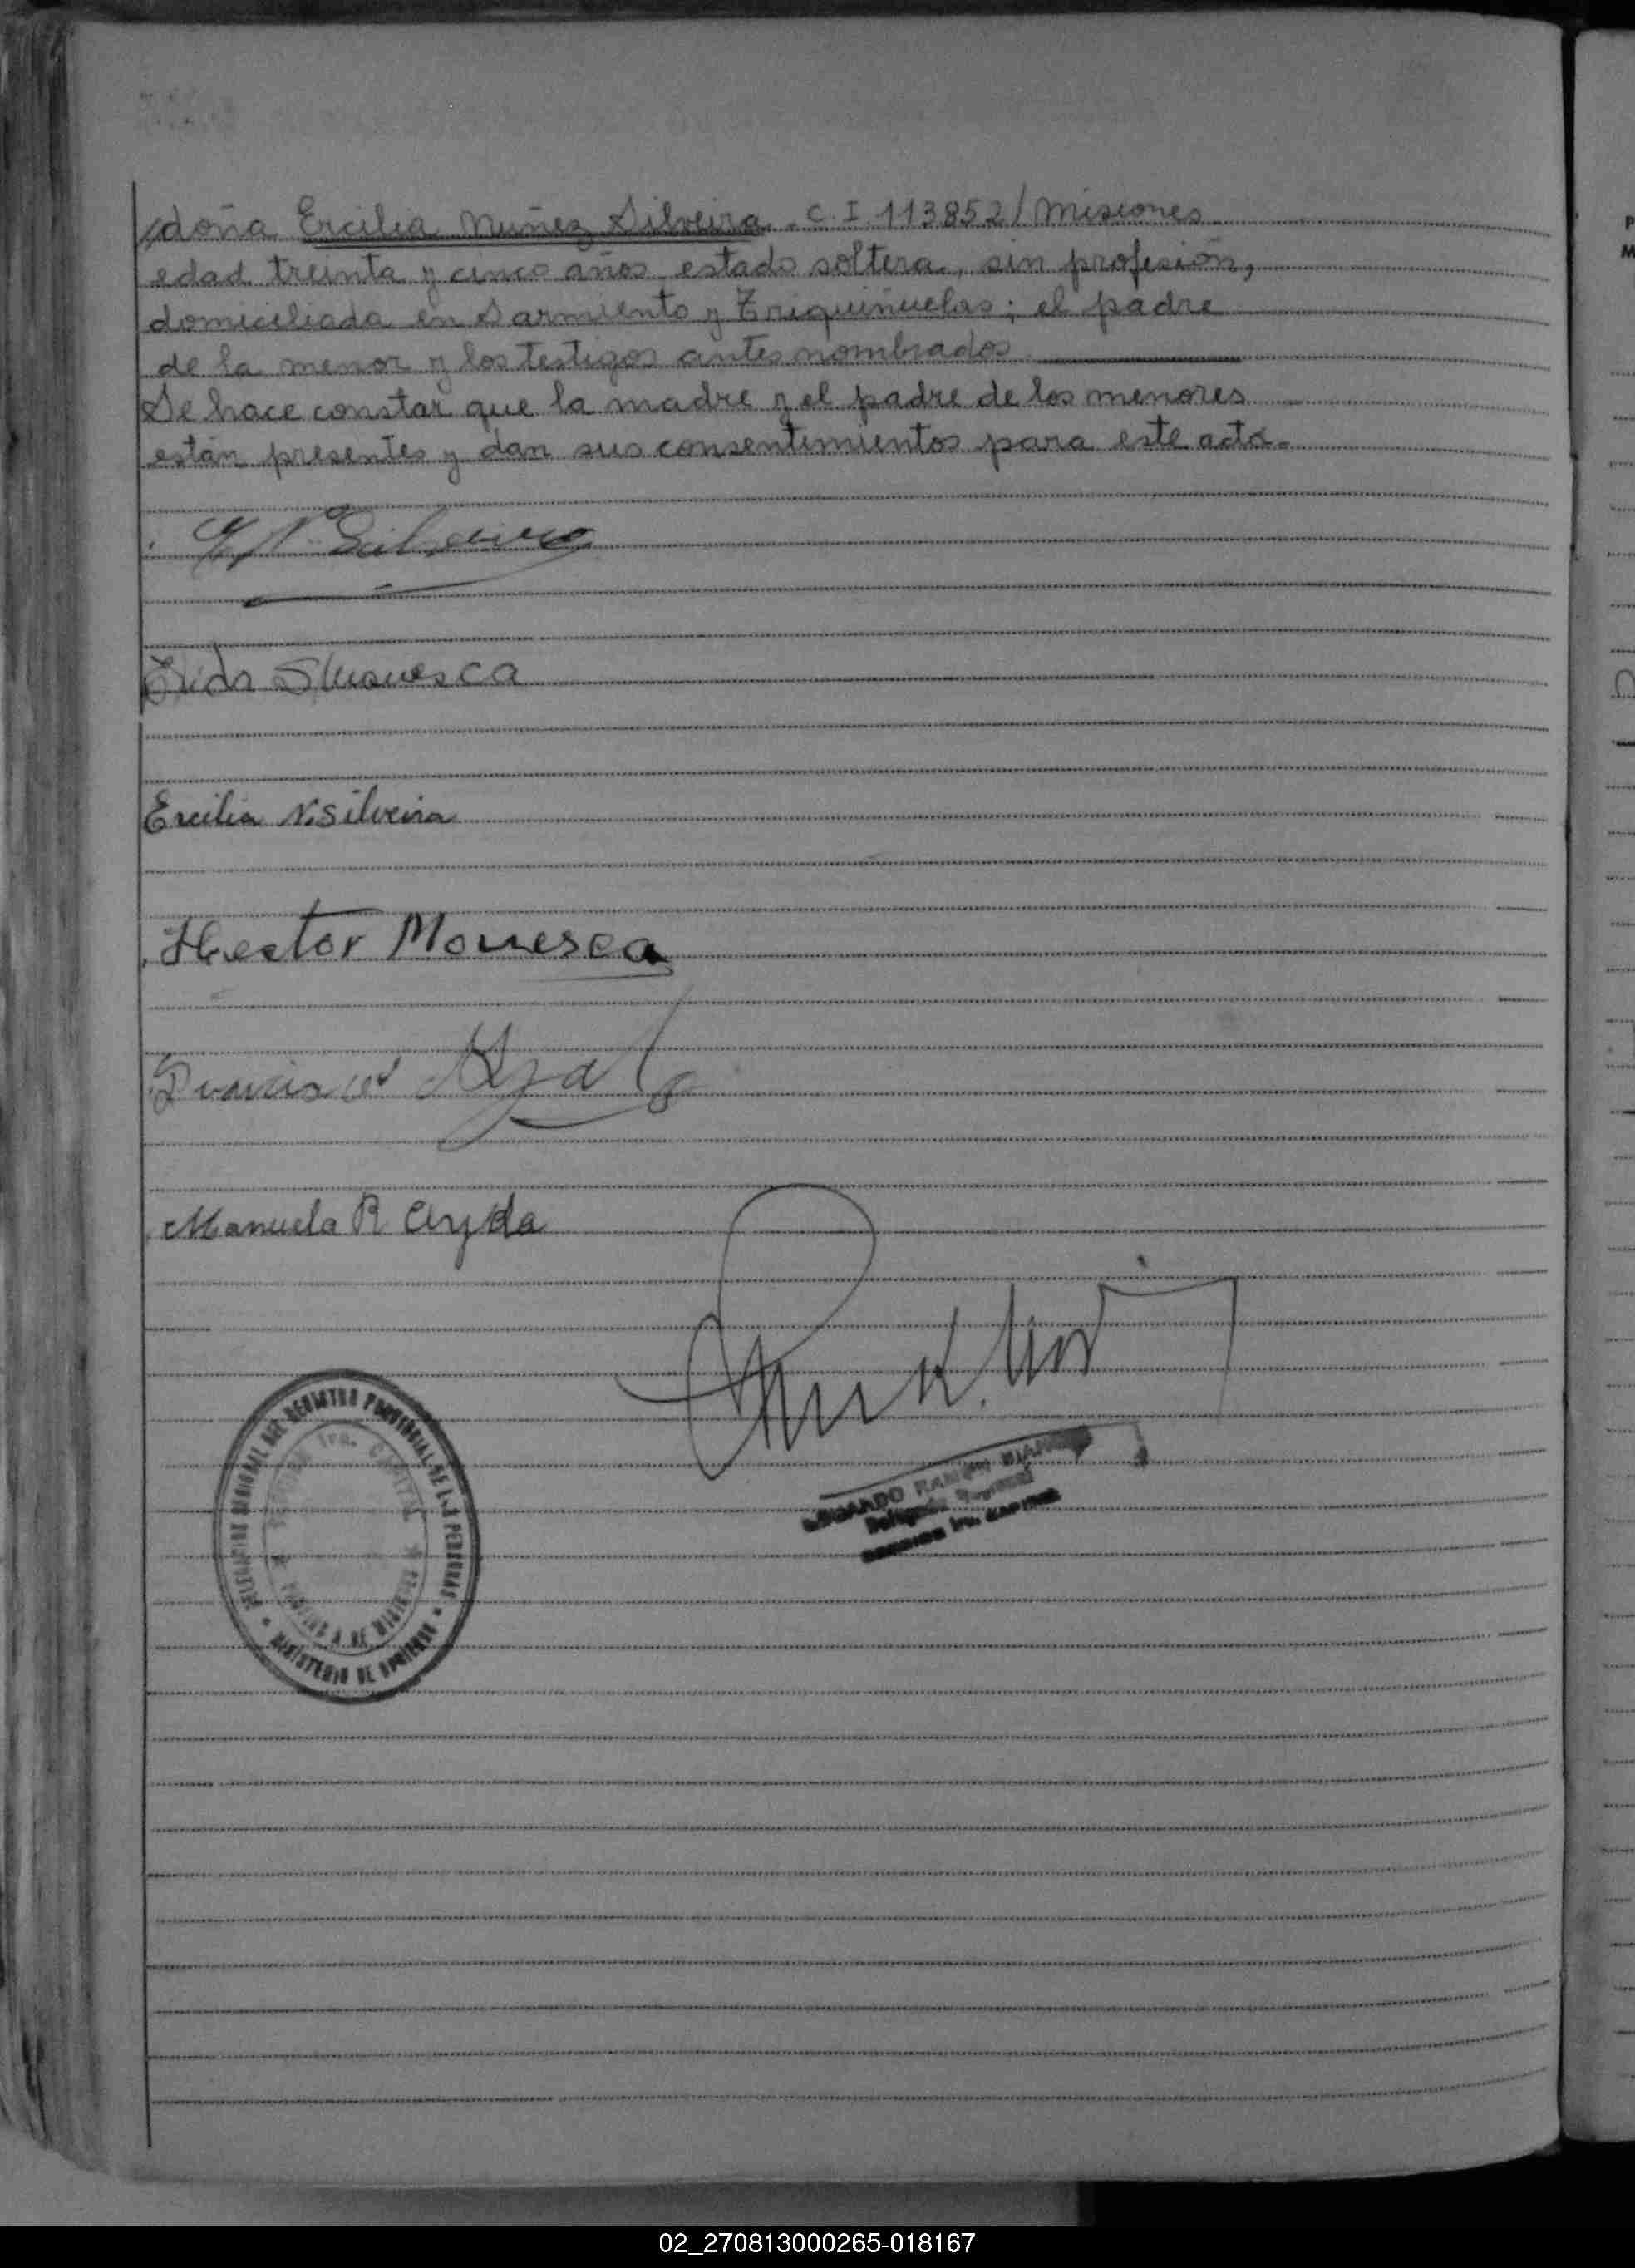 /doña Ercilia Nuñez Silveira. C.I 113852/Misiones
edad treinta y cinco años estado soltera, sin profesión,
domiciliada en Sarmiento y Triquiñuelas; el padre
de la menor y los testigos antes nombrados
Se hace constar que la madre y el padre de los menores
están presentes y dan sus consentimientos para este acto.
N. Silveira
Ercilia N. Silveira
Hector Monesca
Manuela R
DELEGACION REGIONAL DEL REGISTRO PROVINCIAL DE LAS PERSONAS
1ra. CAPITAL
PROVINCIA DE MISIONES
MINISTERIO DE GOBIERNO
RAMON
Delegado Regional
SECCION 1ra. CAPITAL
P
M
02_270813000265-018167